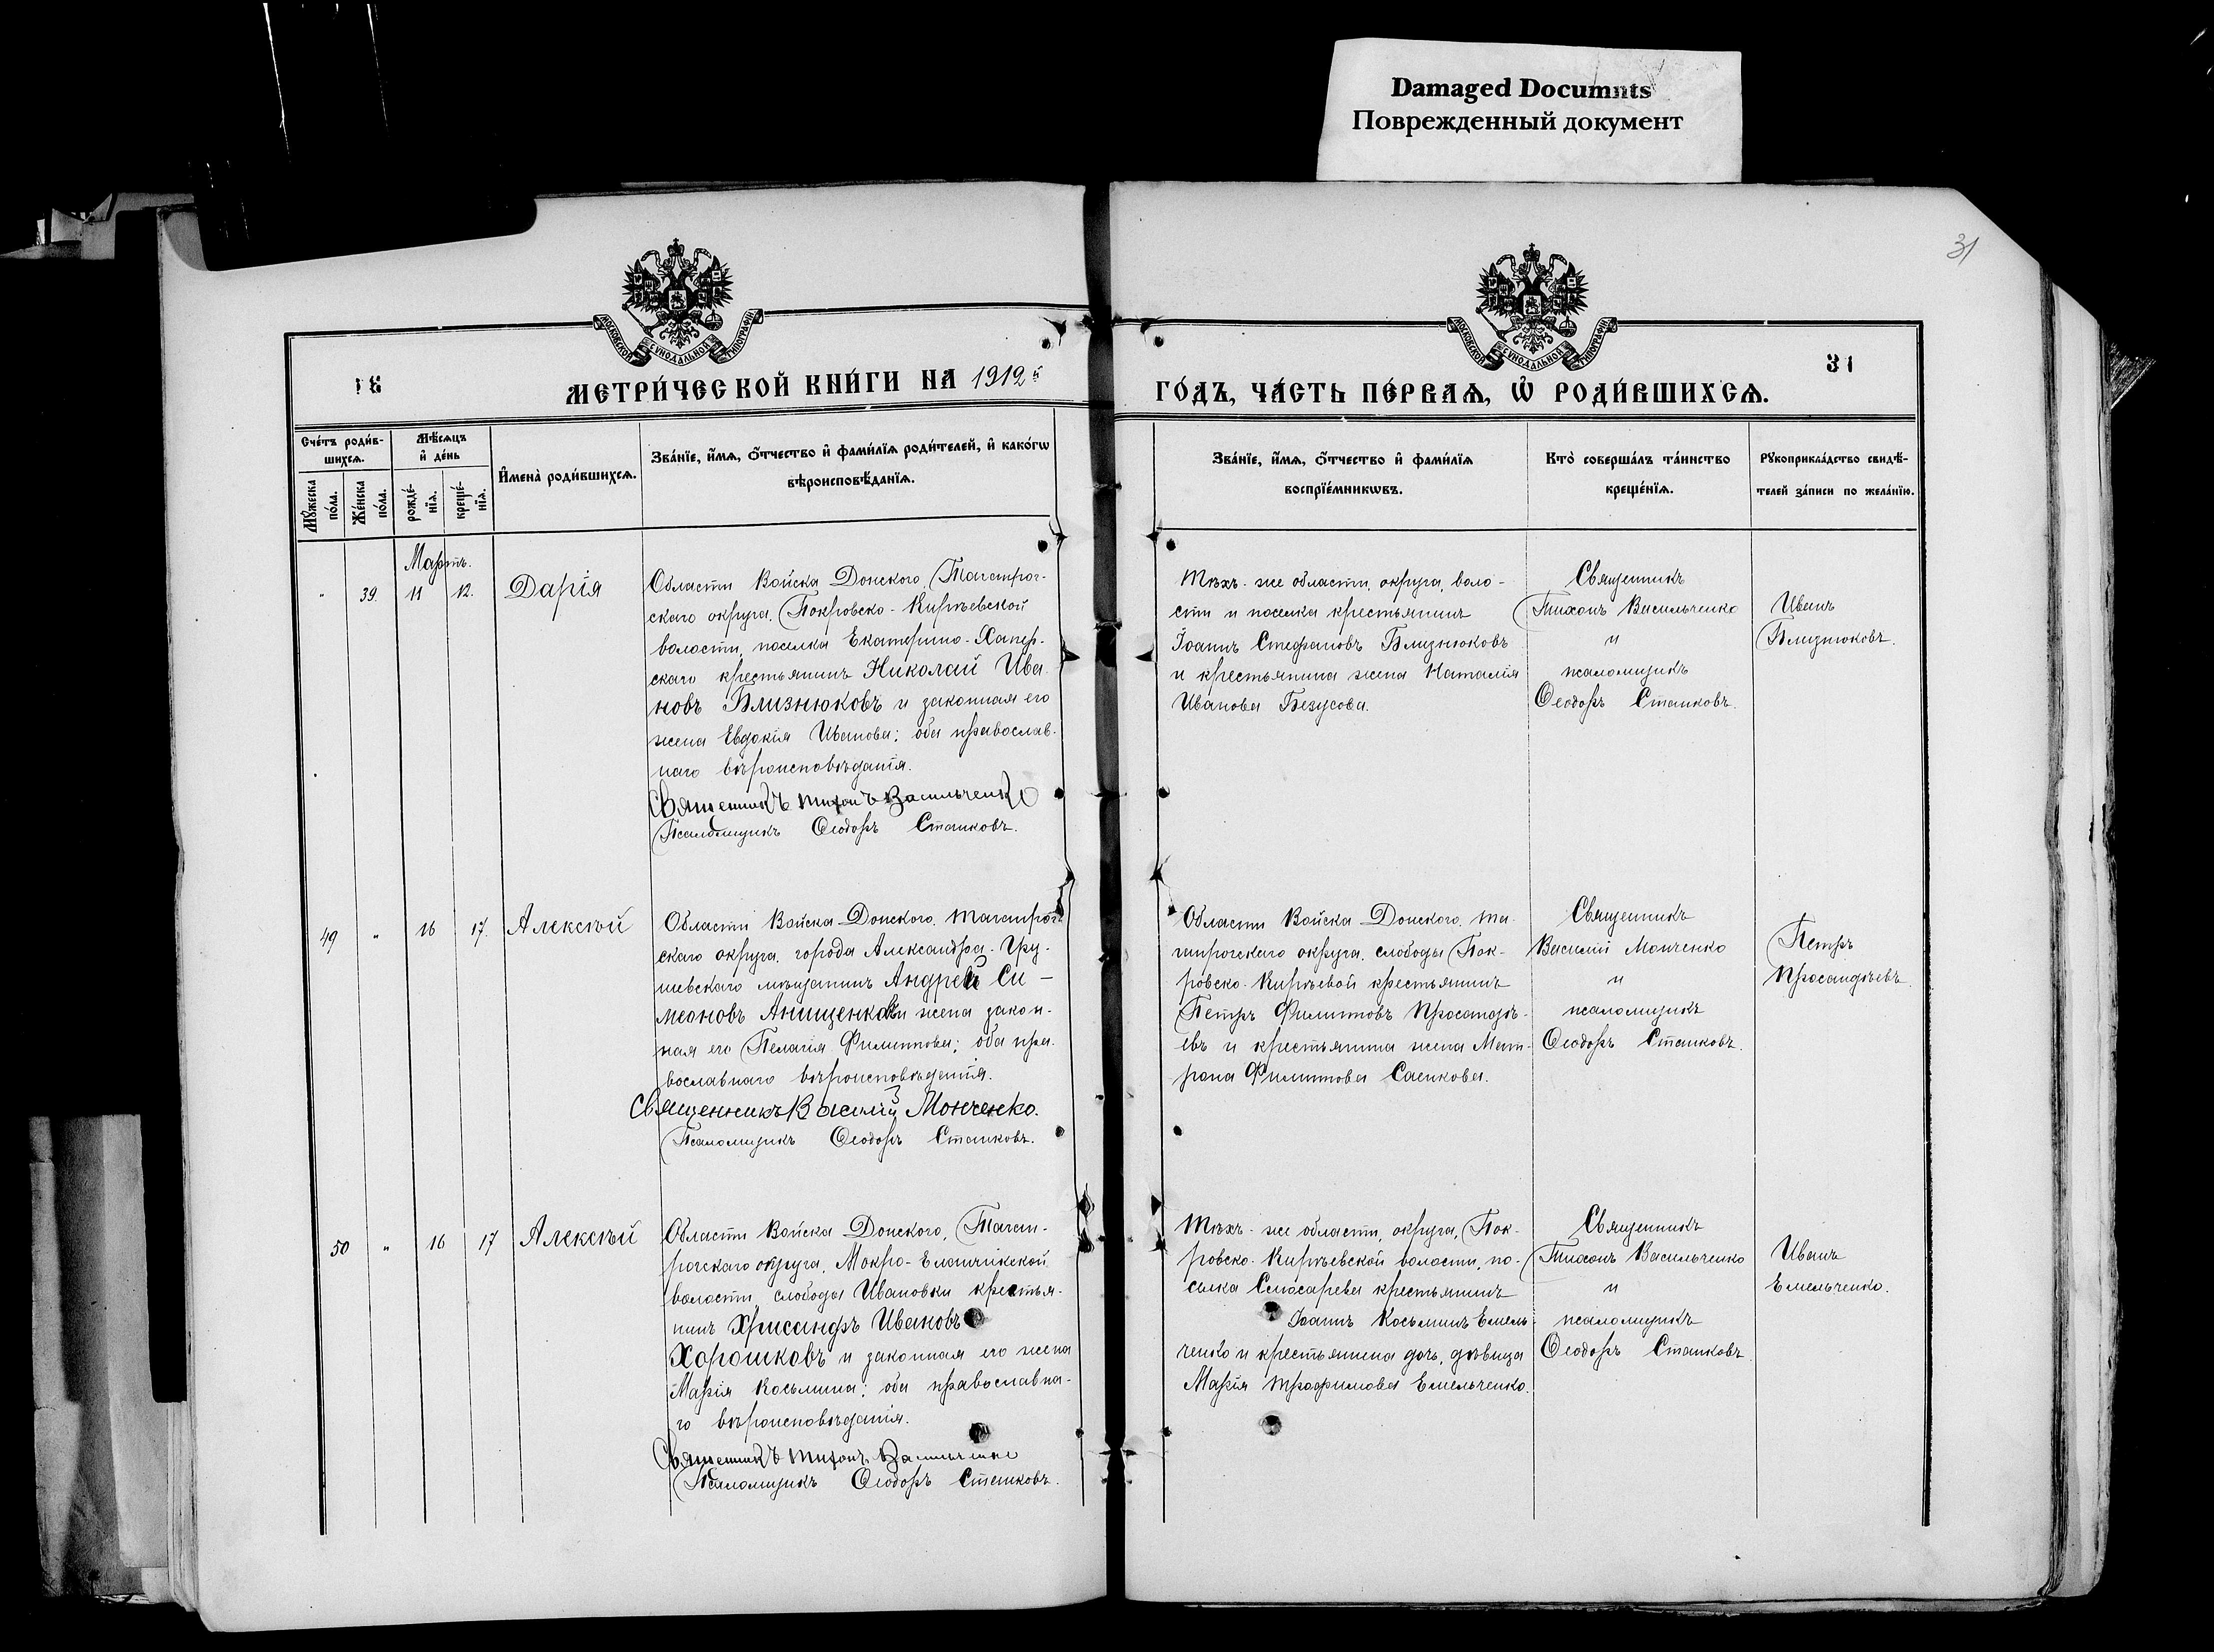 Damaged Documnts
Поврежденный документ
31
МОСКОВСКОЙ СѴНОДАЛЬНОЙ ТИПОГРАФІИ
МОСКОВСКОЙ СѴНОДАЛЬНОЙ ТИПОГРАФІИ
31
МЕТРИ́ЧЕСКОЙ КНИ́ГИ НА 1912й
ГО́ДЪ, ЧА́СТЬ ПЕ́РВАѦ, Ѡ҆ РОДИ́ВШИХСѦ.
31
Сче́тъ роди́в-
шихсѧ.
Мѣ́сѧцъ
и҆ де́нь
Мꙋ́жеска
по́ла.
Же́нска
по́ла.
рожде́-
нїѧ.
креще́-
нїѧ.
И҆мена̀ роди́вшихсѧ.
Зва́нїе, и҆́мѧ, ѻ҆́тчество и҆ фами́лїѧ роди́телей, и҆ како́гѡ
вѣроисповѣ́данїѧ.
Зва́нїе, и҆́мѧ, ѻ҆́тчество и҆ фами́лїѧ
воспрїе́мникѡвъ.
Кто̀ соверша́лъ та́инство
креще́нїѧ.
Рꙋкоприкла́дство свидѣ́-
телей за́писи по жела́нїю.
Мартъ.
" 39. 11 12. Дарія
Области Войска Донского, Таганрог-
скаго округа, Покровско-Кирѣевской
волости, поселка Екатерино-Хапер-
скаго крестьянинъ Николай Ива
новъ Близнюковъ и законная его
жена Евдокія Иванова; оба православ-
наго вѣроисповѣданія.
Священникъ Тихонъ Васильченко
Псаломщикъ Ѳеодоръ Станковъ.
Тѣхъ-же области, округа, воло-
сти и поселка крестьянинъ
Іоаннъ Стефановъ Близнюковъ
и крестьянина жена Наталія
Иванова Безусова.
Священникъ
Тихонъ Васильченко
и
псаломщикъ
Ѳеодоръ Станковъ.
Иванъ
Близнюковъ.
49 " 16 17. Алексѣй
Области Войска Донского, Таганрог-
скаго округа, города Александра-Гру-
шевскаго мѣщанинъ Андрей Си-
меоновъ Анищенковъ и жена закон-
ная его Пелагія Филиппова; оба пра-
вославнаго вѣроисповѣданія.
Священникъ Василий Монченко.
Псаломщикъ Ѳеодоръ Станковъ.
Области Войска Донского, Та-
ганрогскаго округа, слободы Пок-
ровско-Кирѣевой крестьянинъ
Петръ Филипповъ Просандѣ-
евъ и крестьянина жена Мат-
рона Филиппова Саенкова.
Священникъ
Василій Монченко
и
псаломщикъ
Ѳеодоръ Станковъ.
Петръ
Просандѣевъ.
50 " 16 17 Алексѣй
Области Войска Донского, Таган-
рогскаго округа, Мокро-Еланчикской
волости, слободы Ивановки крестья-
нинъ Хрисанфъ Ивановъ
Хорошковъ и законная его жена
Марія Косьмина; оба православна-
го вѣроисповѣданія.
Священникъ Тихонъ Васильченко
Псаломщикъ Ѳеодоръ Станковъ.
Тѣхъ-же области, округа, Пок-
ровско-Кирѣевской волости, по-
селка Слюсарева крестьянинъ
Іоаннъ Косьминъ Емель-
ченко и крестьянина дочь, дѣвица
Марія Трофимова Емельченко.
Священникъ
Тихонъ Васильченко
и
псаломщикъ
Ѳеодоръ Станковъ
Иванъ
Емельченко.